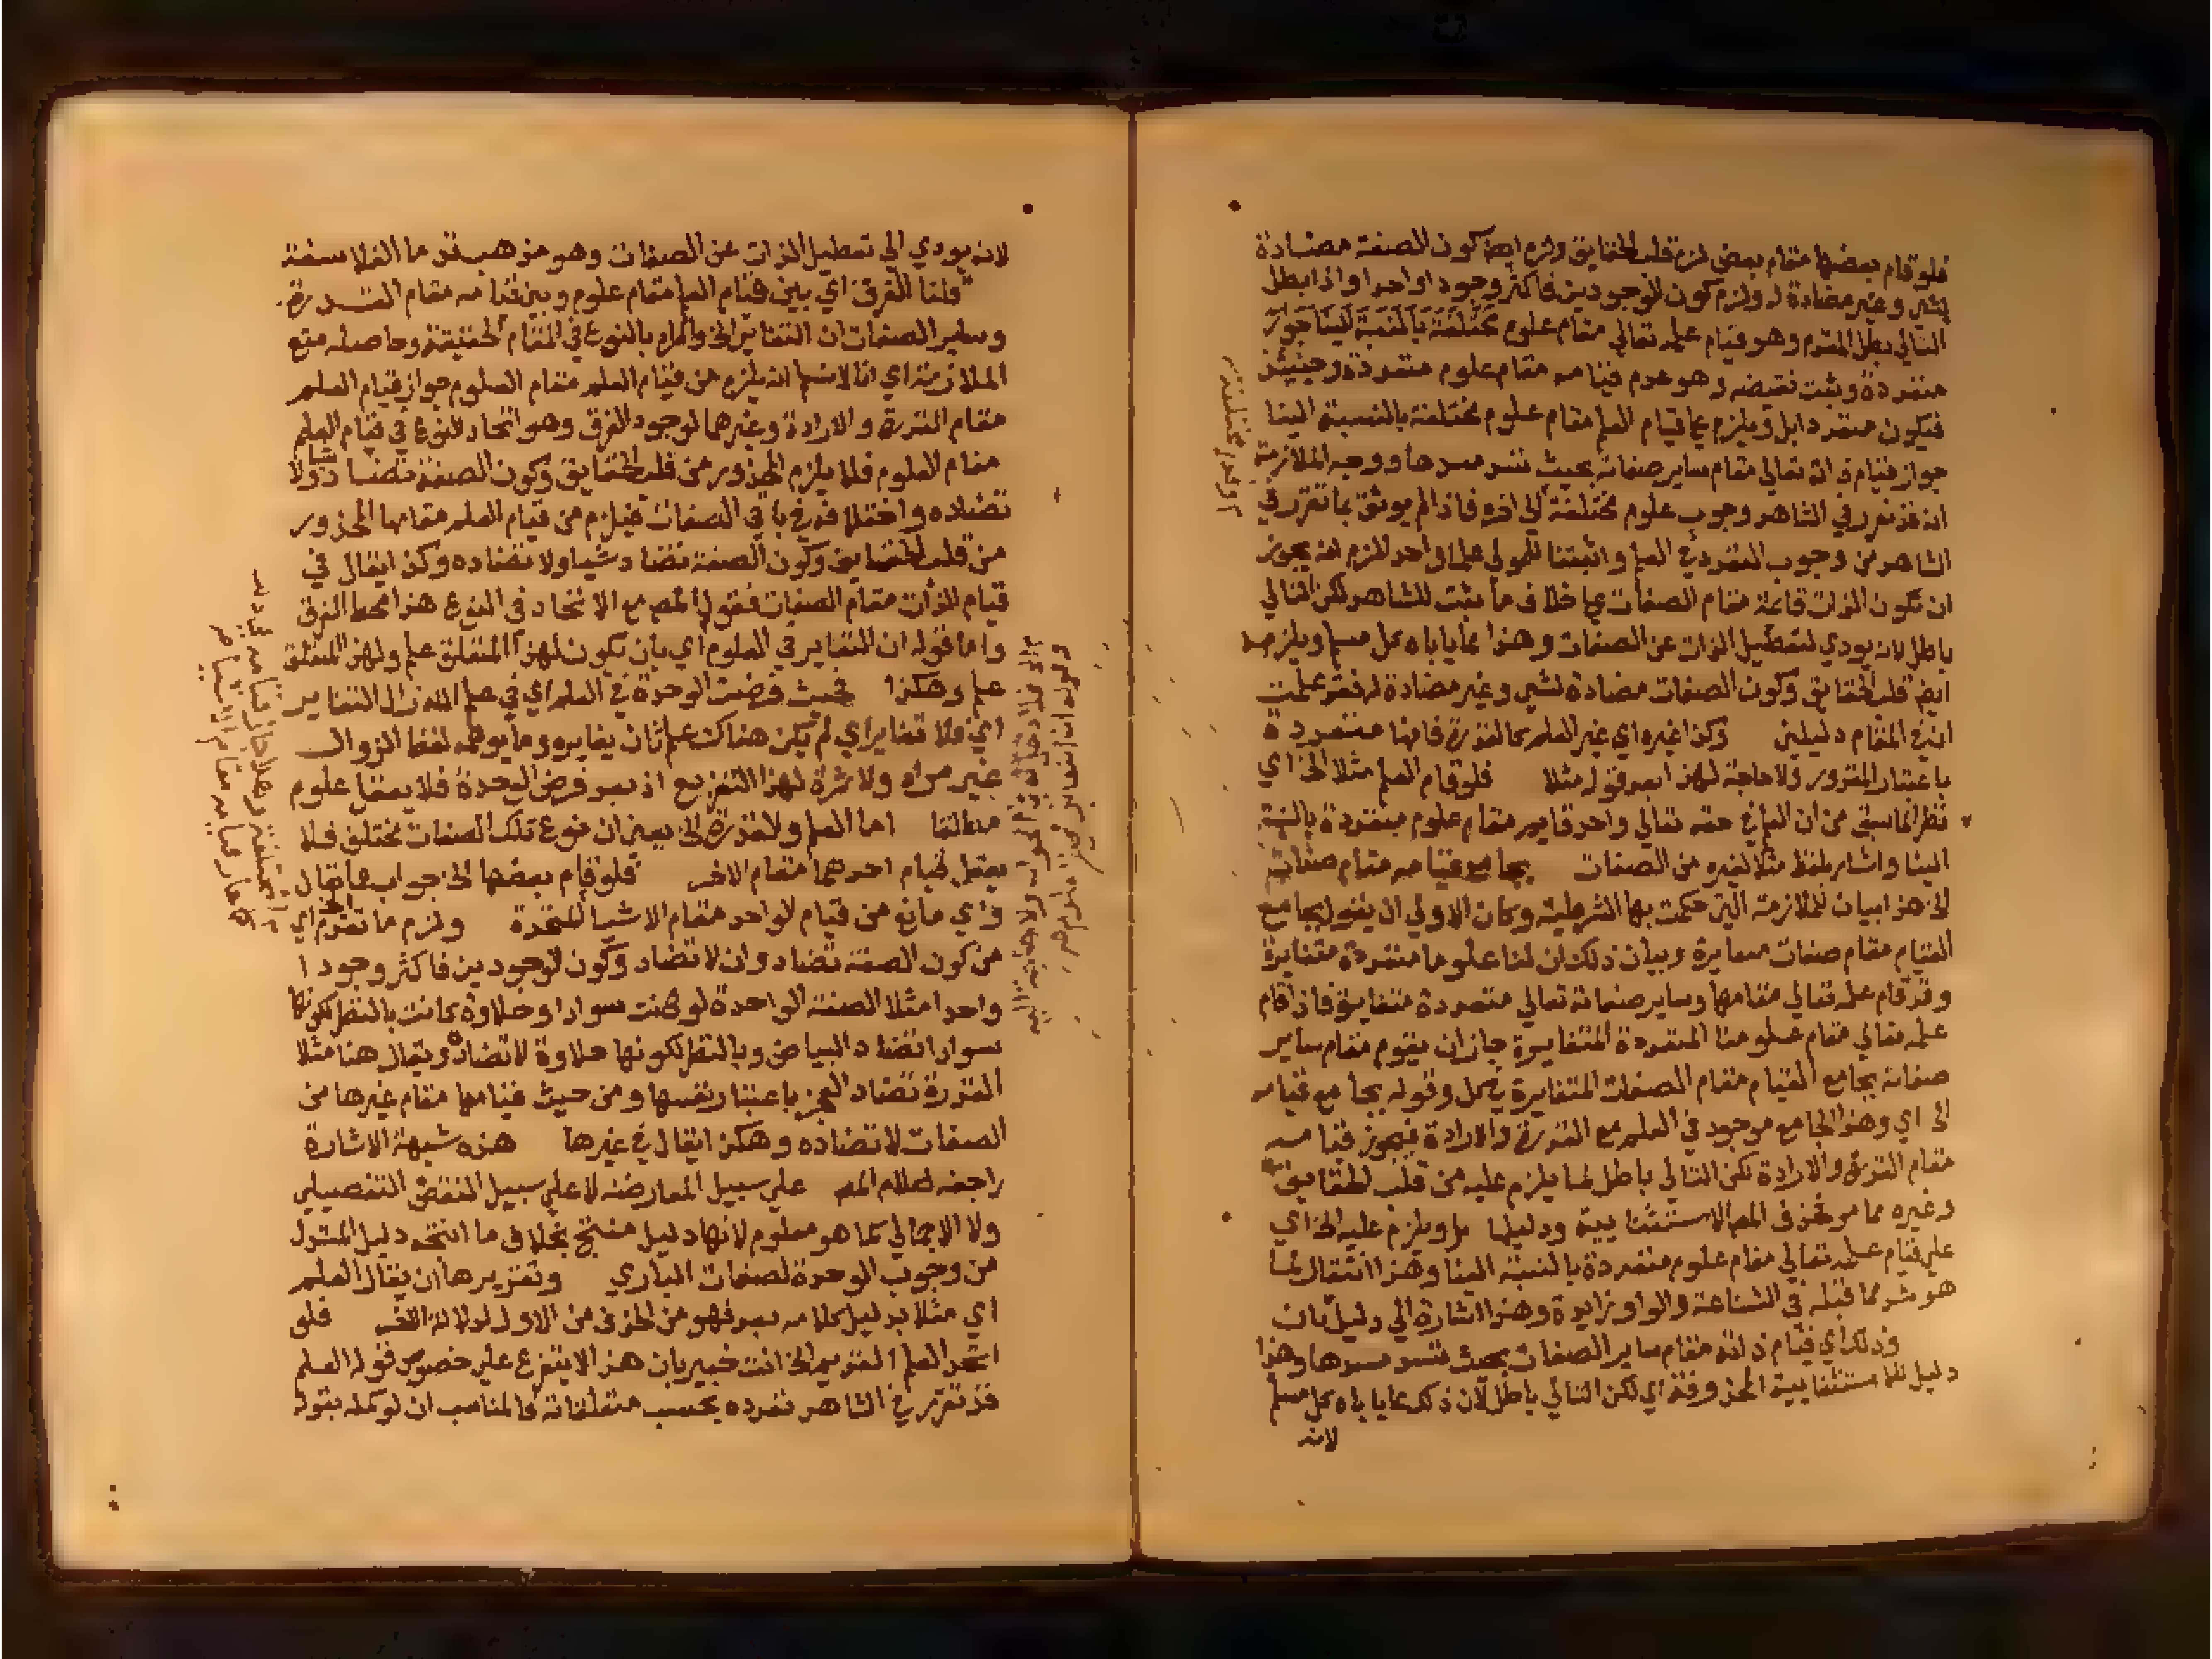 فلو قام بعضها مقام بعض لزم قلب الحقايق ولزم ايضا كون الصفة مضادة
لشي وغير مضادة له ولزم كون الوجودين فاكثر وجودا واحدا واذا بطل
التالي بطل المقدم وهو قيام علمه تعالي مقام علوم مختلفة بالنسبة لنا
متعددة وثبت نقيضه وهو عدم قيامه مقام علوم متعددة وحينيذ
فيكون متعددا بل ويلزم علي قيام العلم مقام علوم مختلفة بالنسبة الينا
جواز قيام ذاته تعالي مقام ساير صفاته بحيث تسد مسدها ووجه الملازمة
انه قد تقرر في الشاهد وجوب علوم مختلفة الي اخره فاذا لم يوثق بما تقرر في
الشاهد من وجوب التعدد في العلم واثبتنا للمولي علما واحدا لزم انه يجوز
ان تكون الذات قايمة مقام الصفات علي خلاف ما ثبت للشاهد لكن التالي
باطل لانه يودي لتعطيل الذات عن الصفات وهذا مما ياباه كل مسلم ويلزمه
ايضا قلب الحقايق وكون الصفات مضادة لشي وغير مضادة له فقد علمت
ان في المقام دليلين وكذا غيره اي غير العلم كالقدرة فانها متعددة
باعتبار المقدور ولا حاجة لهذا بعد قوله مثلا فلو قام العلم مثلا الخ اي
نظرا لما سبق من ان العلم في حقه تعالي واحد قايم مقام علوم متعددة بالنسبة
الينا واشار بلفظ مثلا لغيره من الصفات بجامع قيامه مقام صفات
الخ هذا بيان للملازمة التي حكمت بها الشرطية وكان الاولي ان يقول بجامع
القيام مقام صفات مغايرة وبيان ذلك ان لنا علوما متعددة متغايرة
وقد قام علمه تعالي مقامها وساير صفاته تعالي متعددة متغايرة فاذا قام
علمه تعالي مقام علومنا المتعددة المتغايرة جاز ان يقوم مقام ساير
صفاته بجامع القيام مقام الصفات المتغايرة في كل وقوله بجامع قيامه
الخ اي وهذا الجامع موجود في العلم مع القدرة والارادة فيجوز قيامه
مقام القدرة والارادة لكن التالي باطل لما يلزم عليه من قلب الحقايق
وغيره مما مر فحذف المص الاستثنايية ودليلها بل ويلزم عليه الخ اي
علي قيام علمه تعالي مقام علوم متعددة بالنسبة الينا وهذا انتقال لما
هو اشد مما قبله في الشناعة والواو زايدة وهذا اشارة الي دليل ثان
وذلك اي قيام ذاته مقام ساير الصفات بحيث تسد مسدها وهذا
دليل للاستثنايية المحذوفة اي لكن التالي باطل لان ذلك مما ياباه كل مسلم
لانه
لانه يودي الي تعطيل الذات عن الصفات وهو مذهب قدما الفلاسفة
قلنا الفرق اي بين قيام العلم مقام علوم وبين قيامه مقام القدرة
وساير الصفات ان التغاير الخ والمراد بالنوع في المقام الحقيقة وحاصله منع
الملازمة اي انا لا نسلم انه يلزم من قيام العلم مقام العلوم جواز قيام العلم
مقام القدرة والارادة وغيرهما لوجود الفرق وهو اتحاد النوع في قيام العلم
مقام العلوم فلا يلزم المحذور من قلب الحقايق وكون الصفة تضاد شيا ولا
تضاده واختلافه في باقي الصفات فيلزم من قيام العلم مقامها المحذور
من قلب الحقايق وكون الصفة تضاد شيا ولا تضاده وكذا يقال في
قيام الذات مقام الصفات فقول المص مع الاتحاد في النوع هذا محط الفرق
واما قوله ان التغاير في العلوم اي بان يكون لهذا المتعلق علم ولهذا المتعلق
علم وهكذا فحيث فرضت الوحدة في العلم اي في علم الله زال التغاير
اي فلا تغاير اي لم يكن هناك علم ثان يغايره وما يوهمه لفظ الزوال
غير مراد ولا ثمرة لهذا التفريع اذ بعد فرض الوحدة فلا يعقل علوم
مطلقا اما العلم والقدرة الخ يعني ان نوع تلك الصفات مختلف فلا
يعقل قيام احدهما مقام الاخر فلو قام بعضها الخ جواب عما يقال
واي مانع من قيام الواحد مقام الاشيا المتعددة ولزم ما تقدم اي
من كون الصفة تضاد وان لا تضاد وكون الوجودين فاكثر وجودا
واحدا مثلا الصفة الواحدة لو كانت سوادا وحلاوة كانت بالنظر لكونها
سوادا تضاد البياض وبالنظر لكونها حلاوة لا تضاده ويقال هنا مثلا
القدرة تضاد العجز باعتبار نفسها ومن حيث قيامها مقام غيرها من
الصفات لا تضاده وهكذا يقال في غيرها هذه شبهة الاشارة
راجعة لكلام المص علي سبيل المعارضة لا علي سبيل النقض التفصيلي
ولا الاجمالي كما هو معلوم لانها دليل منتج بخلاف ما انتجه دليل المستدل
من وجوب الوحدة لصفات الباري وتقريرها ان يقال العلم
اي مثلا بدليل كلامه بعد فهو من الحذف من الاول لدلالة فلو
اتحد العلم القديم الخ انت خبير بان هذا لا يتفرع علي خصوص قوله العلم
قد تقرر في الشاهد تعدده بحسب متعلقاته فالمناسب ان لو كمله بقوله